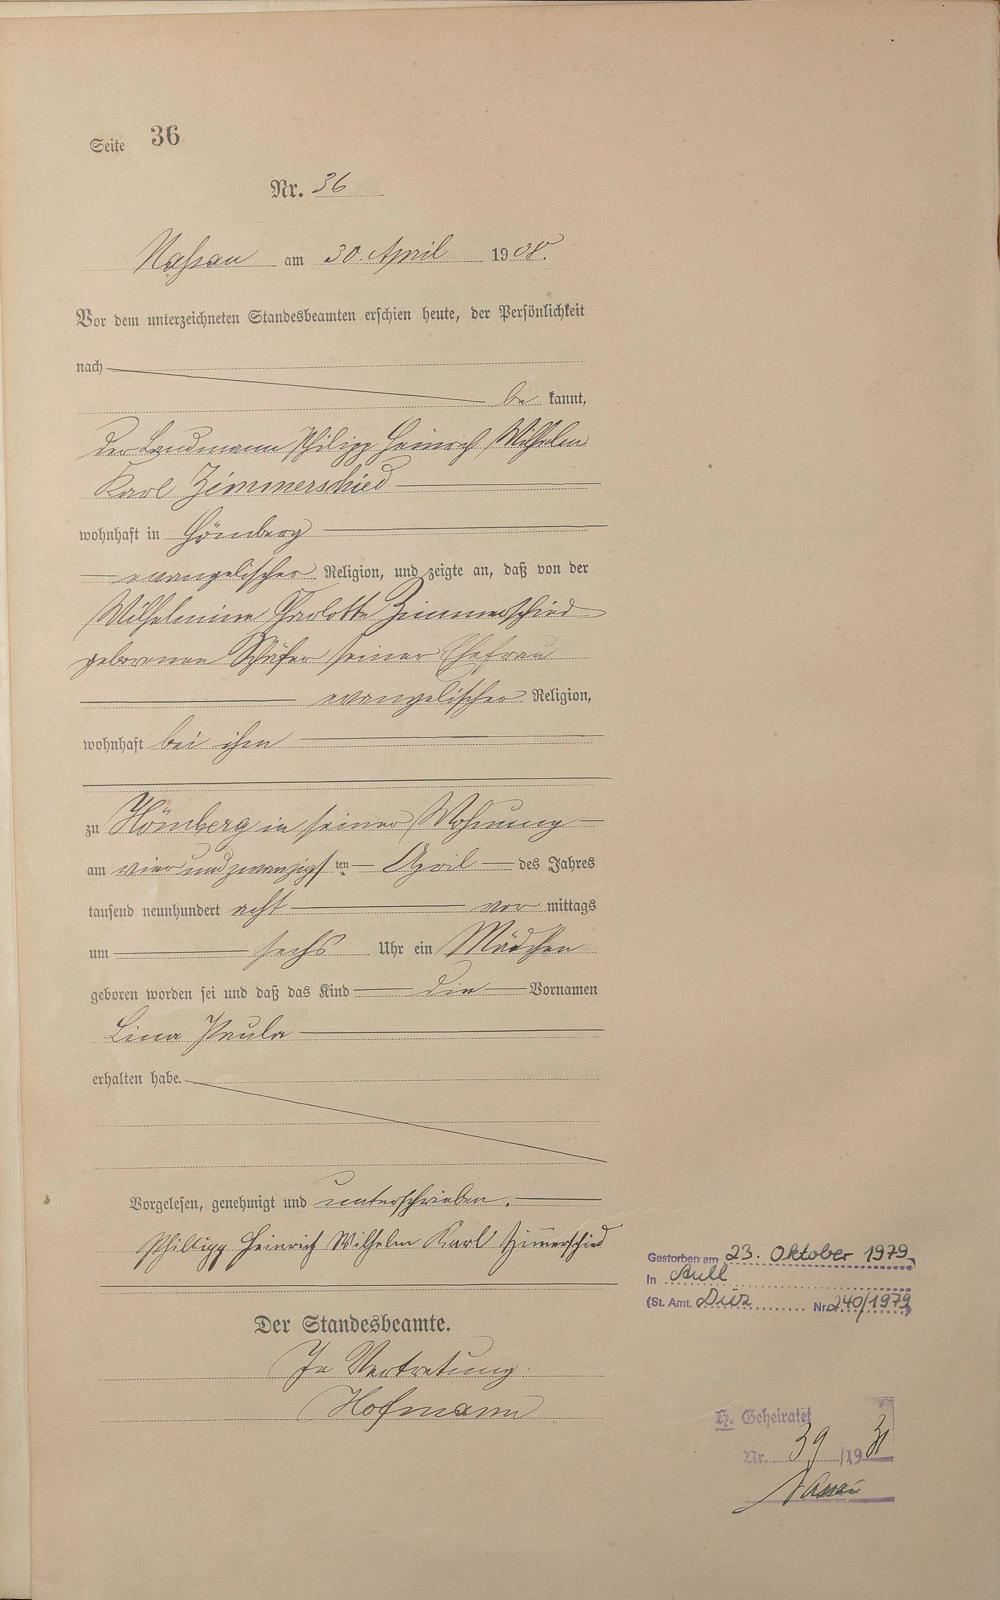 Seite 36
Nr. 36
Nassau am 30. April 1908.
Vor dem unterzeichneten Standesbeamten erschien heute, der Persönlichkeit
nach
be kannt,
der Landmann Philipp Heinrich Wilhelm
Karl Zimmerschied
wohnhaft in Hömberg
evangelischer Religion, und zeigte an, daß von der
Wilhelmine Charlotte Zimmerschied
geborenen Schäfer seiner Ehefrau
evangelischer Religion,
wohnhaft bei ihm
zu Hömberg in seiner Wohnung
am vier und zwanzigsten April des Jahres
tausend neunhundert acht vor mittags
um sechs Uhr ein Mädchen
geboren worden sei und daß das Kind die Vornamen
Lina Paula
erhalten habe.
Vorgelesen, genehmigt und unterschrieben.
Philipp Heinrich Wilhelm Karl Zimmerschied
Gestorben am 23. Oktober 1979
In Aull
(St. Amt. Diez Nr. 240/1979
Der Standesbeamte.
In Vertretung
Hofmann
H. Geheiratet
Nr. 39/1931
Nassau